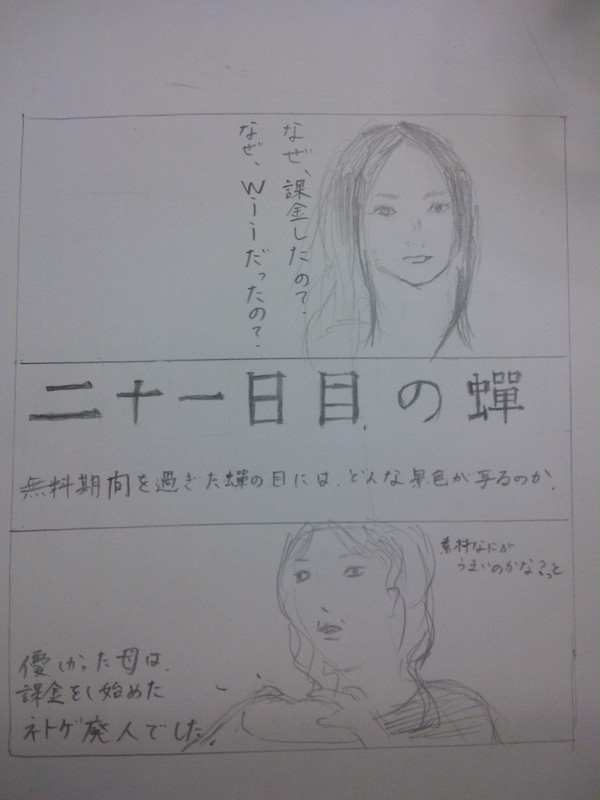 なぜ、課金したの?
なぜ、Wiiだったの?
二十一日目の蟬
無料期間を過ぎた蟬の目には、どんな景色が写るのか。
素材なにが
うまいのかな?っと
優しかった母は、
課金をし始めた
ネトゲ廃人でした。